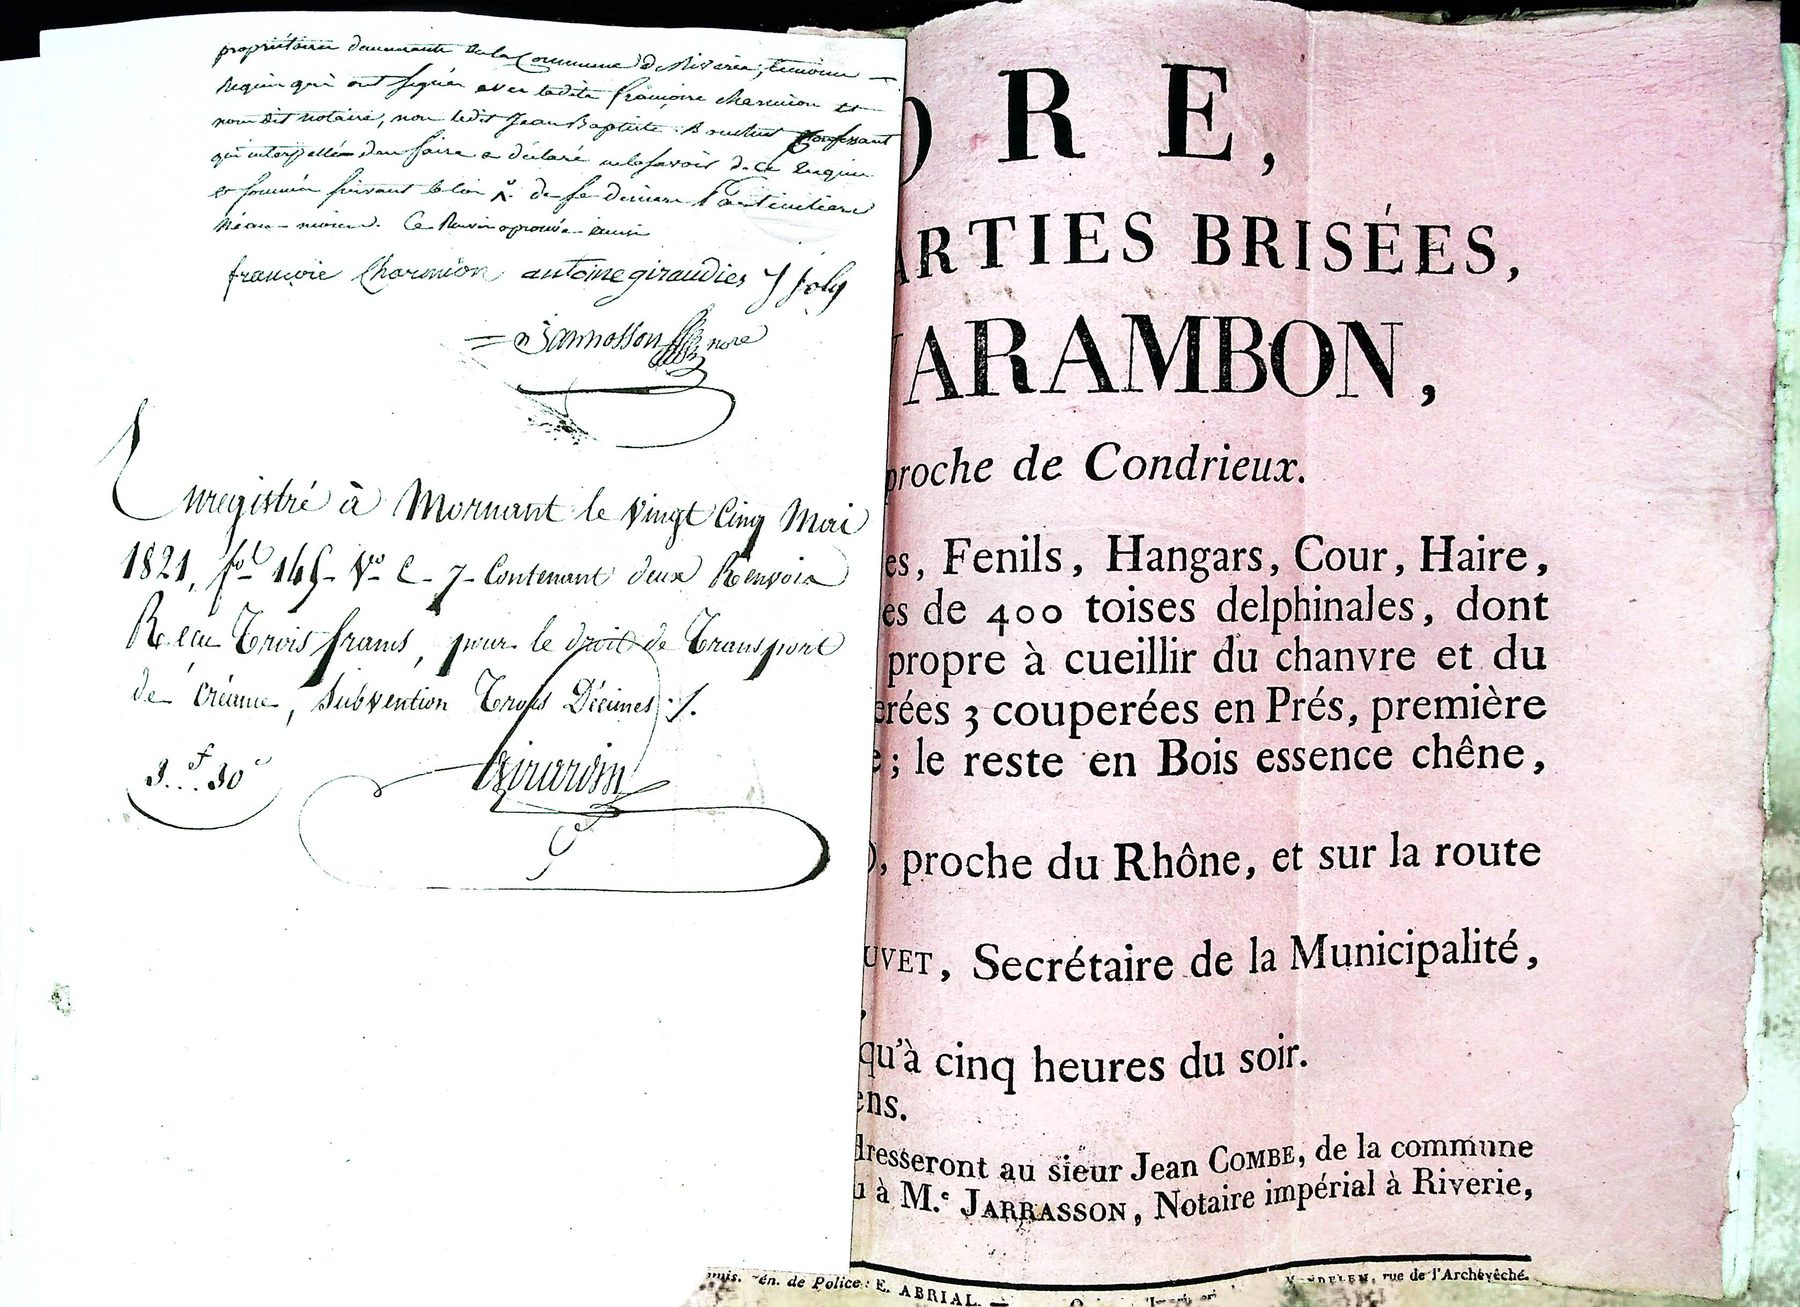 propriétaire demeurants de la Commune de Riverie, témoins
Requis qui ont signés avec ladite françoise charmion et
nous dit notaire, non ledit Jean Baptiste Bouchut Confessant
qui interpellé de ce faire a déclaré ne le savoir de ce Requis
et sommés suivant la loi de se derniere
Néan-moins. Ce Renvoi aprouvé aussi
françoise Charmion antoine giraudier J Joly
Jarrasson nore
Enregistré à Mornant le vingt Cinq Mai
1821, fol 145 Vo C. 7 Contenant deux Renvois
Reçu Trois francs, pour le droit de Transport
de Créance, Subvention Trois Décimes ./.
3..f.30c
Girardin
ORE,
ARTIES BRISÉES,
VARAMBON,
proche de Condrieux.
es, Fenils, Hangars, Cour, Haire,
es de 400 toises delphinales, dont
propre à cueillir du chanvre et du
erées 3 couperées en Prés, première
e ; le reste en Bois essence chêne,
), proche du Rhône, et sur la route
UVET, Secrétaire de la Municipalité,
,
qu'à cinq heures du soir.
ens.
dresseront au sieur Jean COMBE, de la commune
u à M.e JARRASSON, Notaire impérial à Riverie,
én. de Police : E. ABRIAL. — rue de l'Archevêché.